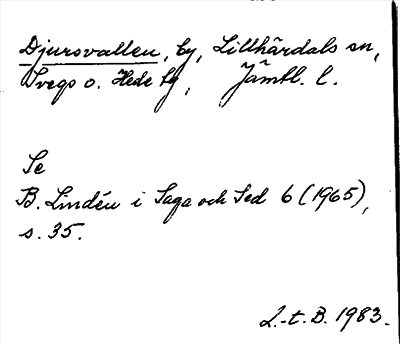 Djursvallen, by, Lillhärdals sn,
Svegs o. Hede tg, Jämtl. l.
Se
B. Lindén i Saga och Sed 6 (1965),
s. 35.
L.-t. B. 1983.